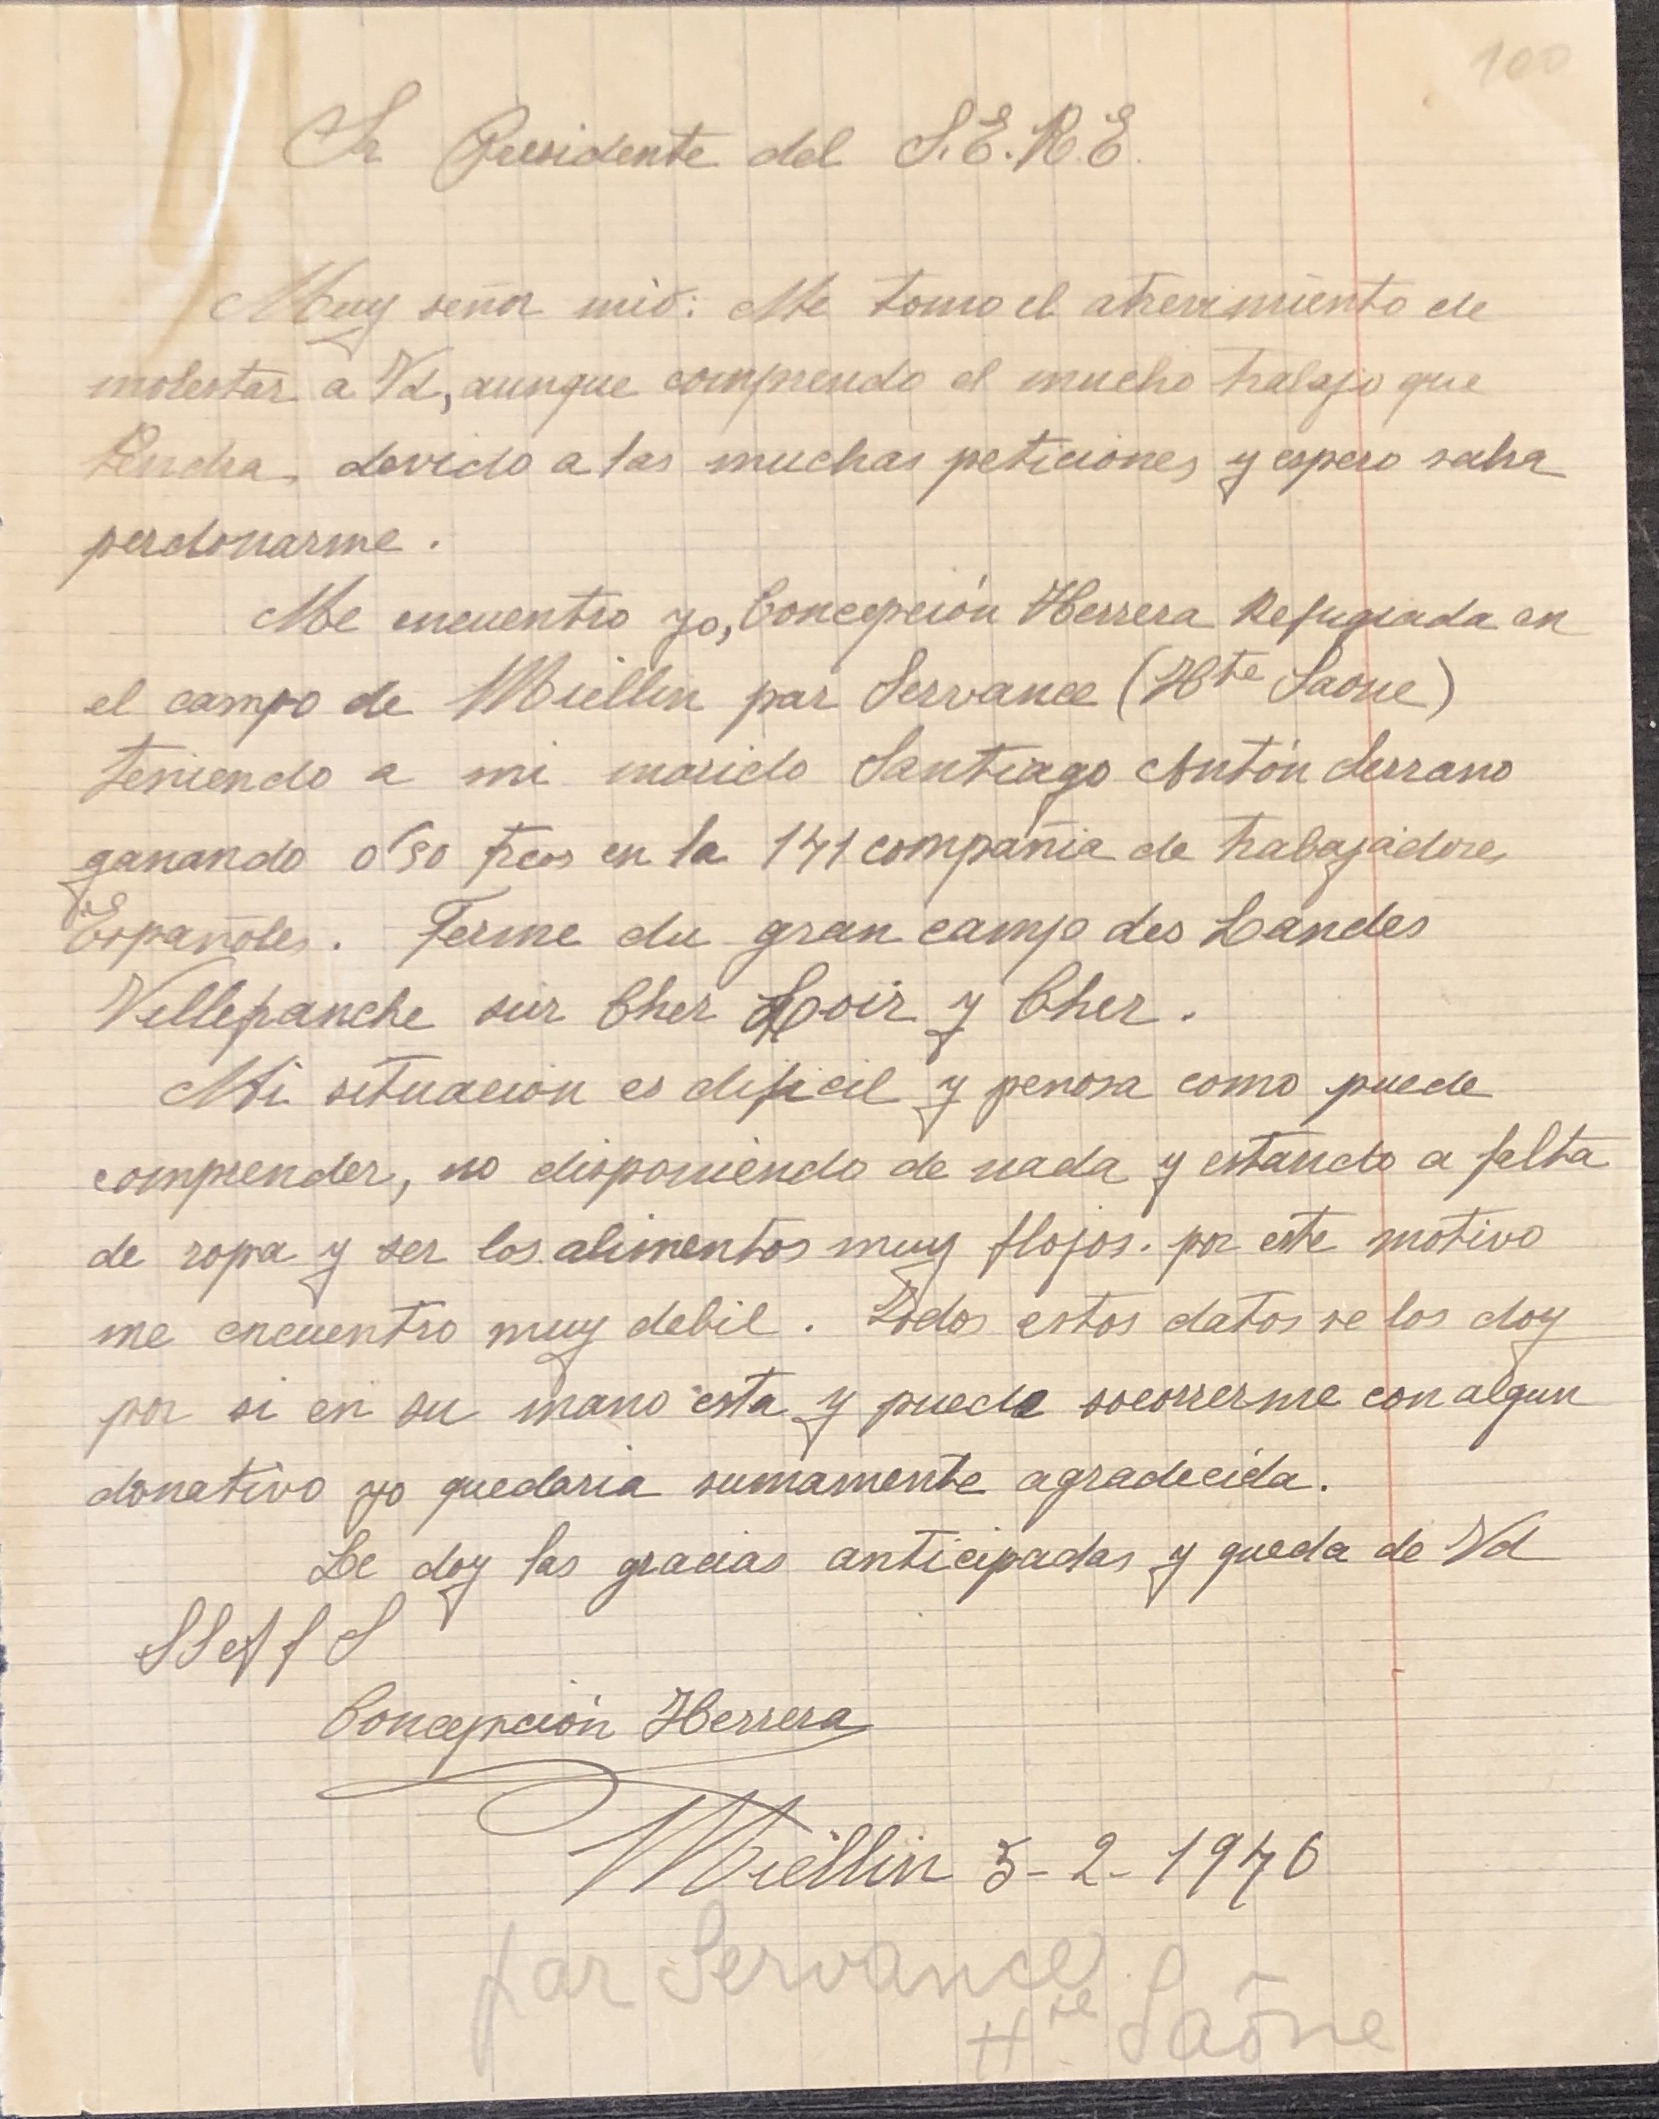 100
Sr Presidente del S.E.R.E.
Muy señor mio: Me tomo el atrevimiento de
molestar a Vd, aunque comprendo el mucho trabajo que
tendra, devido a las muchas peticiones y espero sabra
perdonarme.
Me encuentro yo, Concepción Herrera Refugiada en
el campo de Miellin par Servance (Hte Saone)
teniendo a mi marido Santiago Antón Serrano
ganando 0'50 fcos en la 141 compañia de trabajadores
Españoles. Ferme du gran camp des Landes
Villefranche sur Cher Loir y Cher.
Mi situacion es dificil y penosa como puede
comprender, no disponiendo de nada y estando a falta
de ropa y ser los alimentos muy flojos. por este motivo
me encuentro muy debil. Todos estos datos se los doy
por si en su mano esta y puede socorrerme con algun
donativo yo quedaria sumamente agradecida.
Le doy las gracias anticipadas y queda de Vd
Concepción Herrera
Miellin 5-2-1940
par Servance
Hte Saône